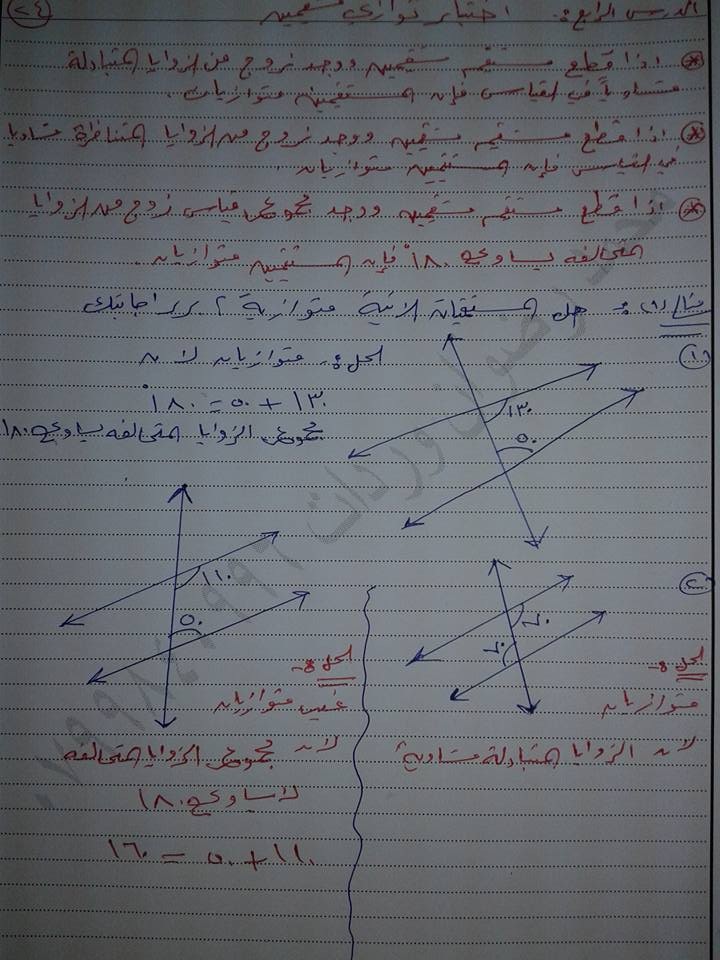 الدرس الرابع : اختبار توازي مستقيمين
(٢٤)
* اذا قطع مستقيم مستقيمين ووجد زوج من الزوايا المتبادلة
متساوياً في القياس فإن المستقيمين متوازيان .
* اذا قطع مستقيم مستقيمين ووجد زوج من الزوايا المتناظرة متساويا
في القياس فإن المستقيمين متوازيان .
* اذا قطع مستقيم مستقيمين ووجد مجموع قياس زوج من الزوايا
المتحالفه يساوي ١٨٠° فإن المستقيمين متوازيان .
مثال (١) : هل المستقيمات الاتية متوازية ؟ برر اجابتك
١)
الحل :- متوازيان لان
١٣٠ + ٥٠ = ١٨٠°
مجموع الزوايا المتحالفه يساوي ١٨٠
١٣٠
٥٠
٢)
٧٠
٧٠
الحل :-
متوازيان
لان الزوايا المتبادلة متساوية
١١٠
٥٠
الحل :-
غير متوازيان
لان مجموع الزوايا المتحالفه
لا يساوي ١٨٠
١١٠ + ٥٠ = ١٦٠
محمد رضوان وردات